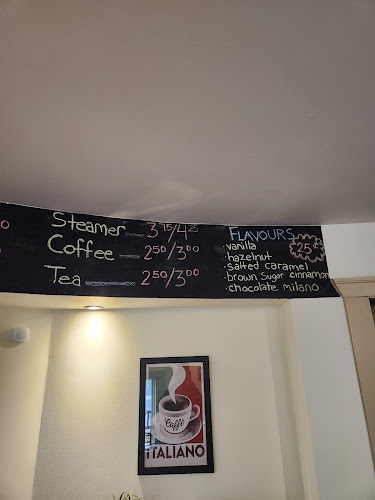 Steamer 3 75/4 25
Coffee 2 50/3 00
Tea 2 50/3 00
FLAVOURS 25
·vanilla
·hazelnut
·salted caramel
·brown sugar cinnamon
·chocolate milano
Caffè
ITALIANO